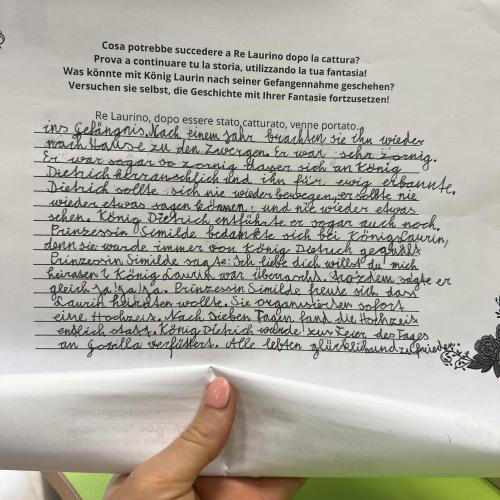 Cosa potrebbe succedere a Re Laurino dopo la cattura?
Prova a continuare tu la storia, utilizzando la tua fantasia!
Was könnte mit König Laurin nach seiner Gefangennahme geschehen?
Versuchen sie selbst, die Geschichte mit Ihrer Fantasie fortzusetzen!
Re Laurino, dopo essere stato catturato, venne portato...
ins Gefängnis. Nach einem Jahr brachten sie ihn wieder
nach Hause zu den Zwergen. Er war sehr zornig.
Er war sogar so zornig dass er sich an König
Dietrich und ihn für ewig
Dietrich sollte sich nie wieder bewegen, er sollte nie
wieder etwas sagen können und nie wieder etwas
sehen. König Dietrich entführte er sogar auch noch.
Prinzessin Similde bedankte sich bei König Laurin,
denn sie wurde immer von König Dietrich gequält
Prinzessin Similde sagte: Ich liebe dich willst du mich
heiraten? König Laurin war überrascht. Trozdem sagte er
gleich ja! ja! ja. Prinzessin Similde freute sich dass
Laurin heiraten wollte. Sie organisierten sofort
eine Hochzeit. Nach sieben Tagen fand die Hochzeit
endlich statt. König Dietrich wurde zur Feier des Tages
an Gorilla verfüttert. Alle lebten glücklich und zufrieden.